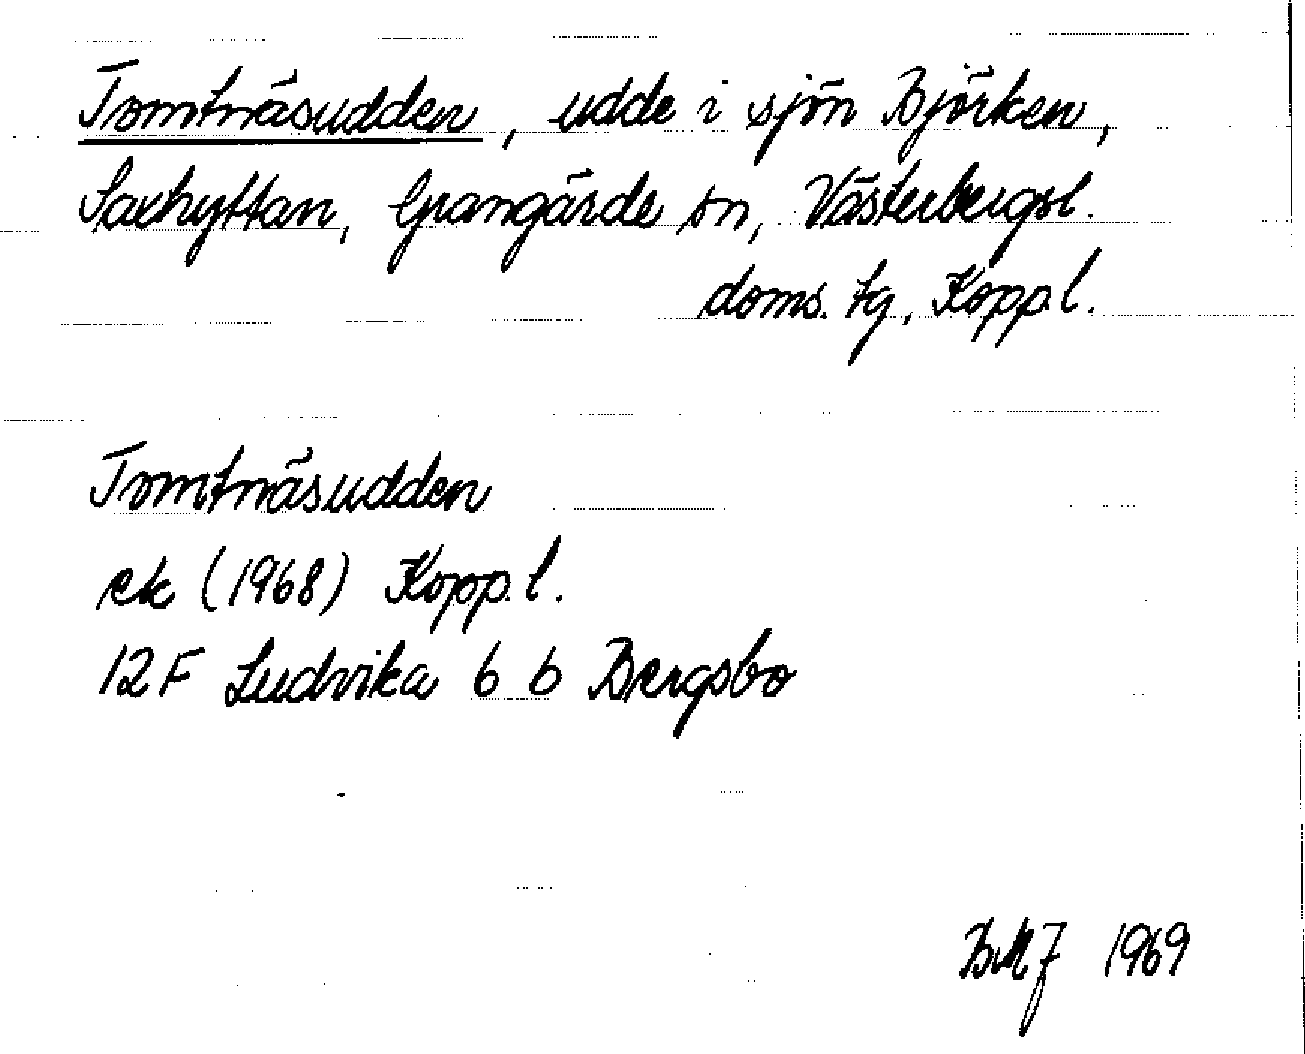 Tomtnäsudden, udde i sjön Björken,
Saxhyttan, Grangärde sn, Västerbergsl.
doms. tg, Kopp.l.
Tomtnäsudden
ek (1968) Kopp.l.
12F Ludvika 6 b Bergsbo
BMJ 1969